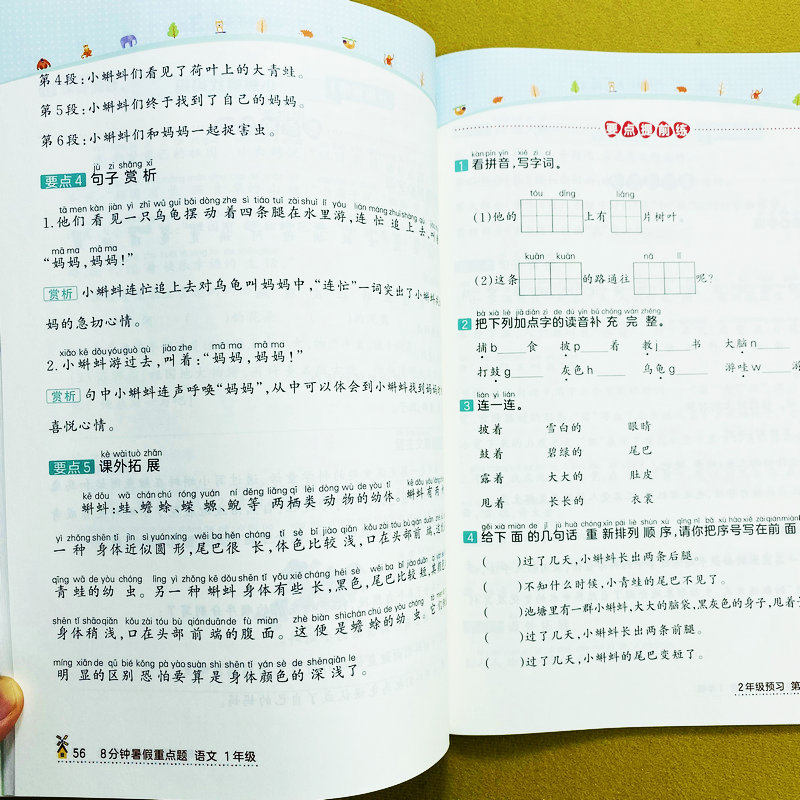 第4段:小蝌蚪们看见了荷叶上的大青蛙。
第5段:小蝌蚪们终于找到了自己的妈妈。
第6段:小蝌蚪们和妈妈一起捉害虫。
jù zi shǎng xī
要点4 句子赏析
tā men kàn jiàn yì zhī wū guī bǎi dòng zhe sì tiáo tuǐ zài shuǐ lǐ yóu lián máng zhuī shàng qù
1.他们看见一只乌龟摆动着四条腿在水里游,连忙追上去,
mā ma mā ma
“妈妈,妈妈!”
赏析 小蝌蚪连忙追上去对乌龟叫妈妈中,“连忙”一词突出了小蝌蚪
妈的急切心情。
xiǎo kē dǒu yóu guò qù jiào zhe mā ma mā ma
2.小蝌蚪游过去,叫着:“妈妈,妈妈!”
赏析 句中小蝌蚪连声呼唤“妈妈”,从中可以体会到小蝌蚪找到妈妈
喜悦心情。
kè wài tuò zhǎn
要点5 课外拓展
kē dǒu wā chán chú róng yuán ní děng liǎng qī lèi dòng wù de yòu tǐ kē dǒu yǒu
蝌蚪:蛙、蟾蜍、蝾螈、鲵等两栖类动物的幼体。蝌蚪有两
yì zhǒng shēn tǐ jìn sì yuán xíng wěi ba hěn cháng tǐ sè bǐ jiào qiǎn kǒu zài tóu bù qián duān
一种身体近似圆形,尾巴很长,体色比较浅,口在头部前端,
qīng wā de yòu chóng lìng yì zhǒng kē dǒu shēn tǐ yǒu xiē cháng hēi sè wěi ba bǐ jiào duǎn
青蛙的幼虫。另一种蝌蚪身体有些长,黑色,尾巴比较短,
shēn tǐ shāo qiǎn kǒu zài tóu bù qián duān de fù miàn zhè biàn shì chán chú de yòu chóng
身体稍浅,口在头部前端的腹面。这便是蟾蜍的幼虫。它们
míng xiǎn de qū bié kǒng pà yào suàn shì shēn tǐ yán sè de shēn qiǎn le
明显的区别恐怕要算是身体颜色的深浅了。
56 8分钟暑假重点题 语文 1年级
要点提前练
kàn pīn yīn xiě zì cí
1 看拼音,写字词。
tóu dǐng liǎng
(1)他的 上有 片树叶。
kuān kuān nǎ lǐ
(2)这条 的路通往 呢?
bǎ xià liè jiā diǎn zì de dú yīn bǔ chōng wán zhěng
2 把下列加点字的读音补充完整。
捕b____食 披p____着 教j____书 大脑n____
打鼓g____ 灰色h____ 乌龟g____ 游哇w____游
lián yi lián
3 连一连。
披着 雪白的 眼睛
鼓着 碧绿的 尾巴
露着 大大的 肚皮
甩着 长长的 衣裳
gěi xià miàn de jǐ jù huà chóng xīn pái liè shùn xù qǐng nǐ bǎ xù hào xiě zài qián miàn
4 给下面的几句话重新排列顺序,请你把序号写在前面
( )过了几天,小蝌蚪长出两条后腿。
( )不知什么时候,小青蛙的尾巴不见了。
( )池塘里有一群小蝌蚪,大大的脑袋,黑灰色的身子,甩着
( )过了几天,小蝌蚪长出两条前腿。
( )过了几天,小蝌蚪的尾巴变短了。
2年级预习 第